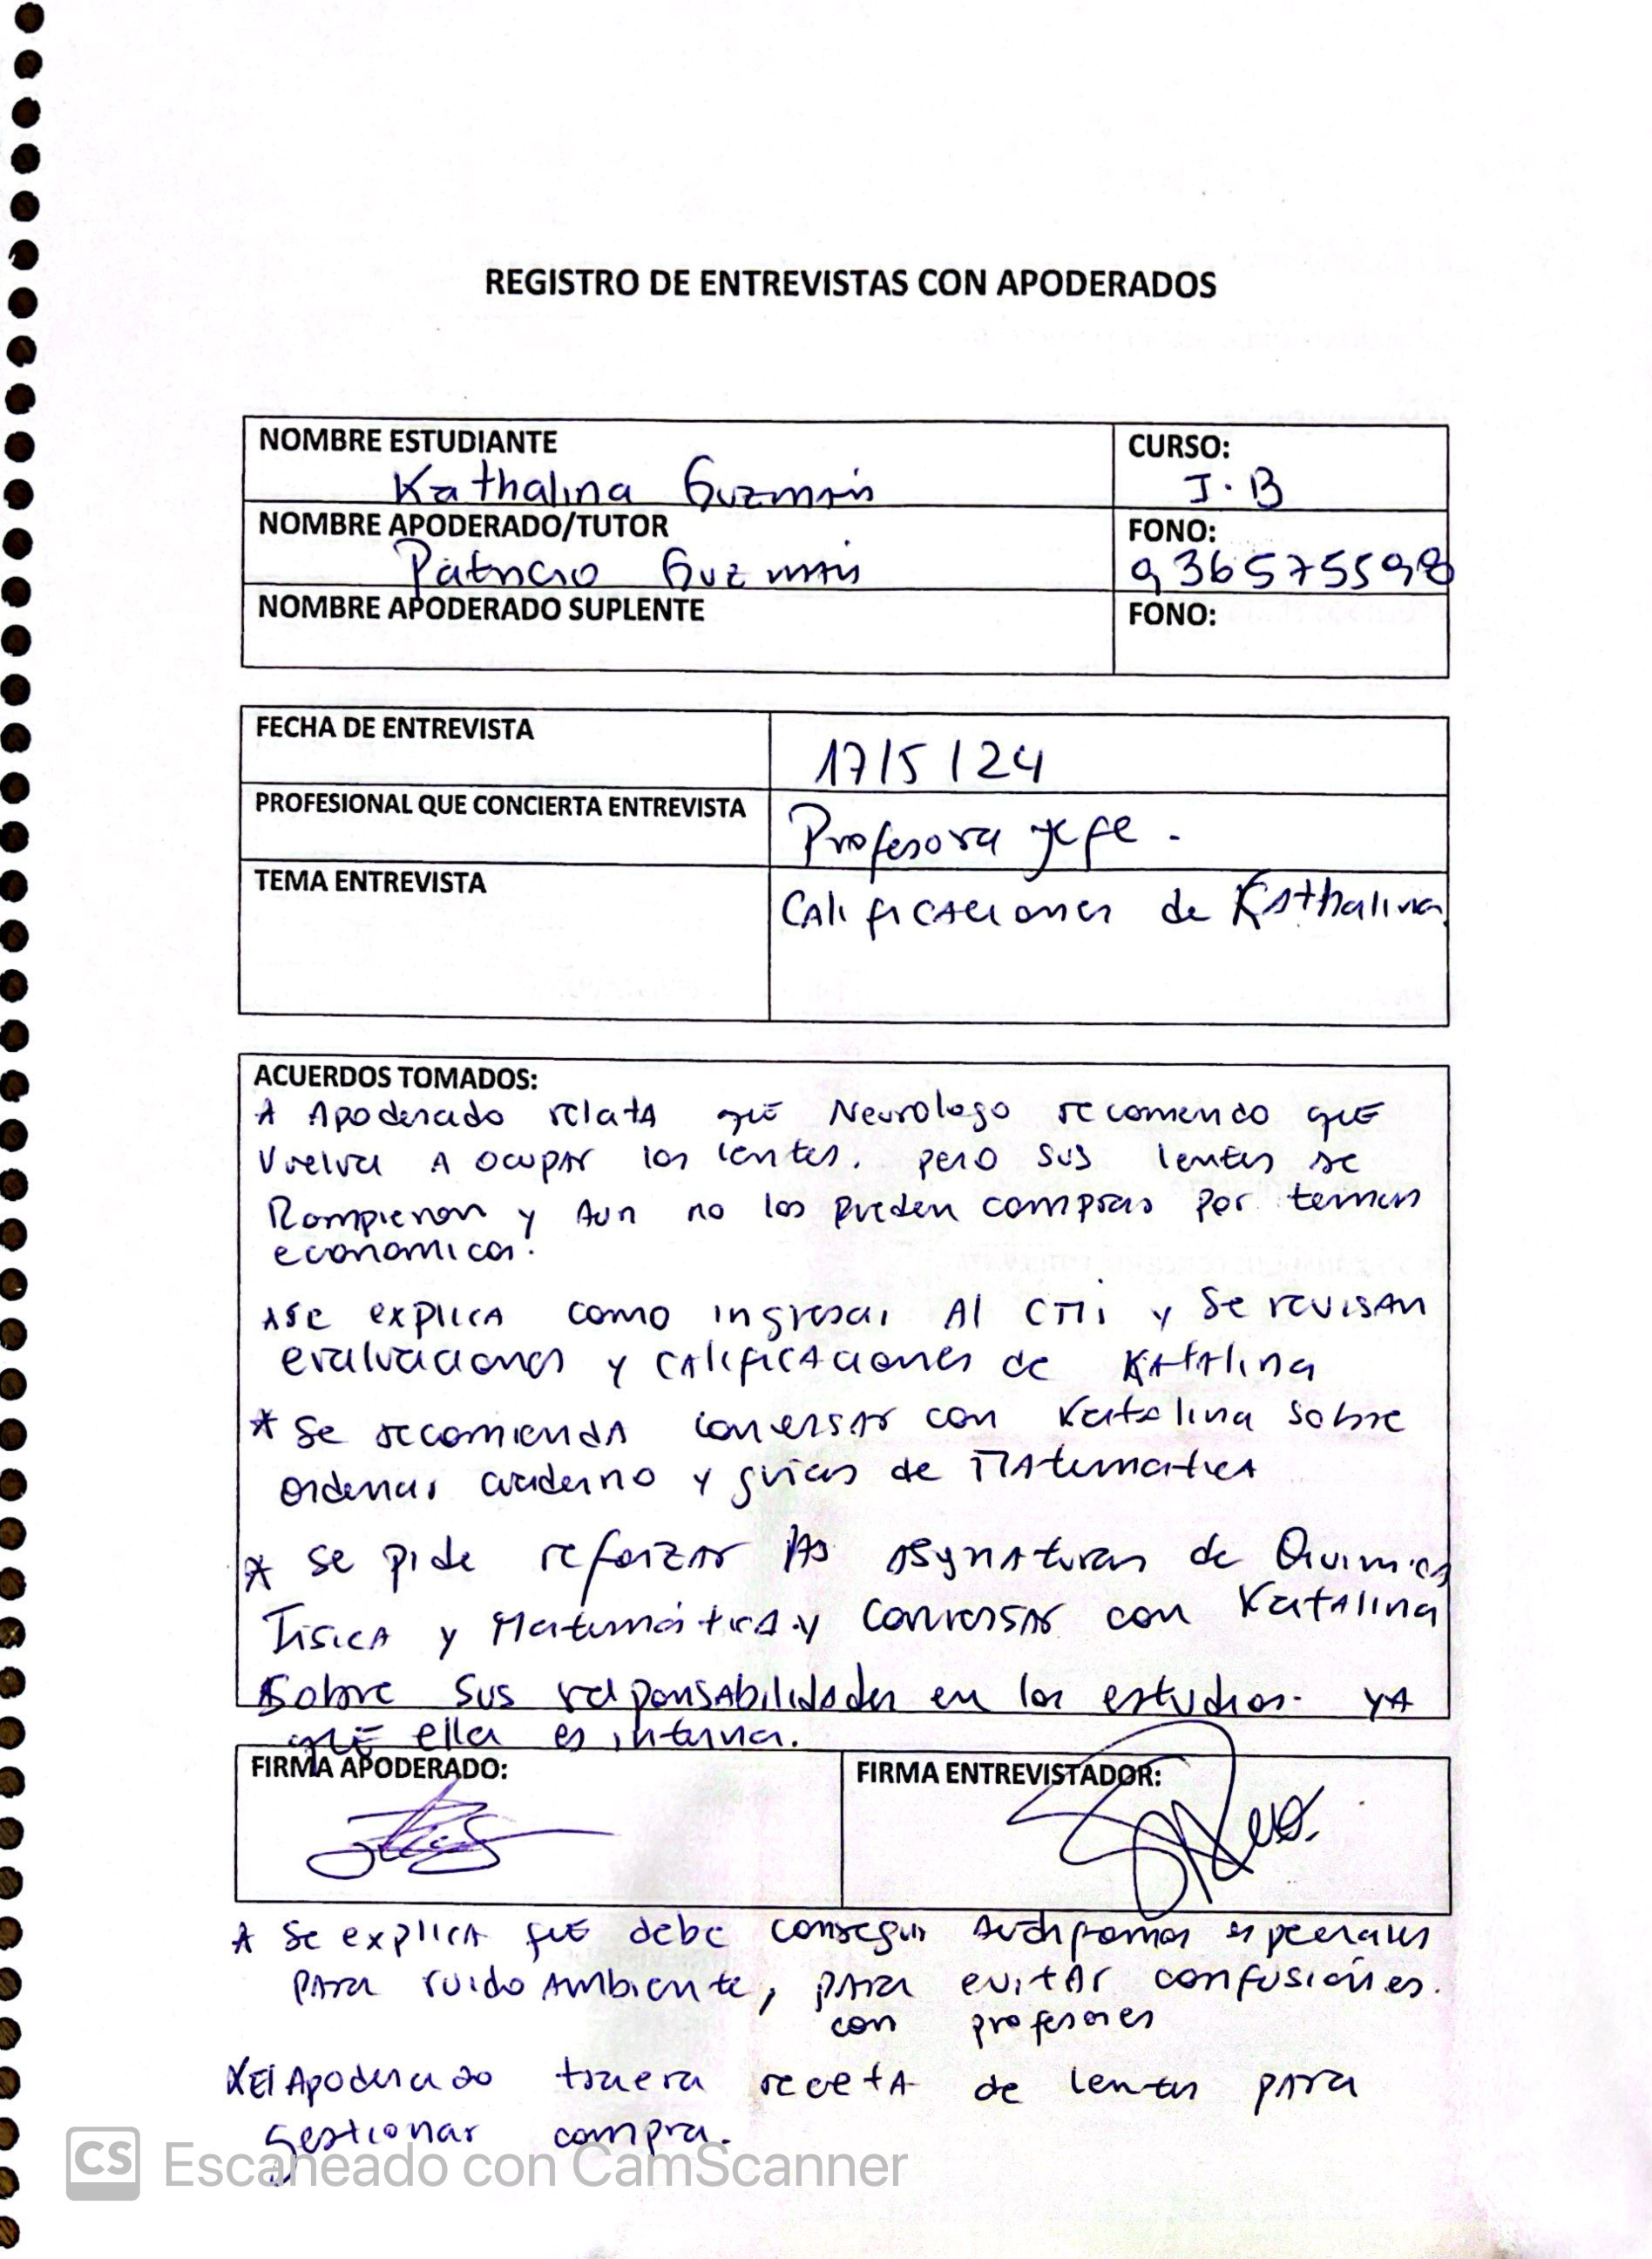 REGISTRO DE ENTREVISTAS CON APODERADOS
NOMBRE ESTUDIANTE
Kathalina Guzmán
CURSO:
I.B
NOMBRE APODERADO/TUTOR
Patricio Guzmán
FONO:
936575598
NOMBRE APODERADO SUPLENTE
FONO:
FECHA DE ENTREVISTA
17/5/24
PROFESIONAL QUE CONCIERTA ENTREVISTA
Profesora jefe.
TEMA ENTREVISTA
Calificaciones de Kathalina
ACUERDOS TOMADOS:
* Apoderado relata que Neurologo recomendo que
vuelva a ocupar los lentes. pero sus lentes se
Rompieron y Aun no los pueden comprar por temas
economicos.
* Se explica como ingresar Al CMi y Se revisan
evaluaciones y calificaciones de Katalina
* Se recomienda conversar con Katalina Sobre
ordenar cuaderno y guias de Matematica
* Se pide reforzar las asignaturas de Quimica
Fisica y Matemática y conversar con Katalina
Sobre sus responsabilidades en los estudios. ya
que ella es interna.
FIRMA APODERADO:
FIRMA ENTREVISTADOR:
* Se explica que debe conseguir Audifonos especiales
para ruido Ambiente, para evitar confusiones.
con profesores
* El Apoderado traera receta de lentes para
gestionar compra.
CS Escaneado con CamScanner